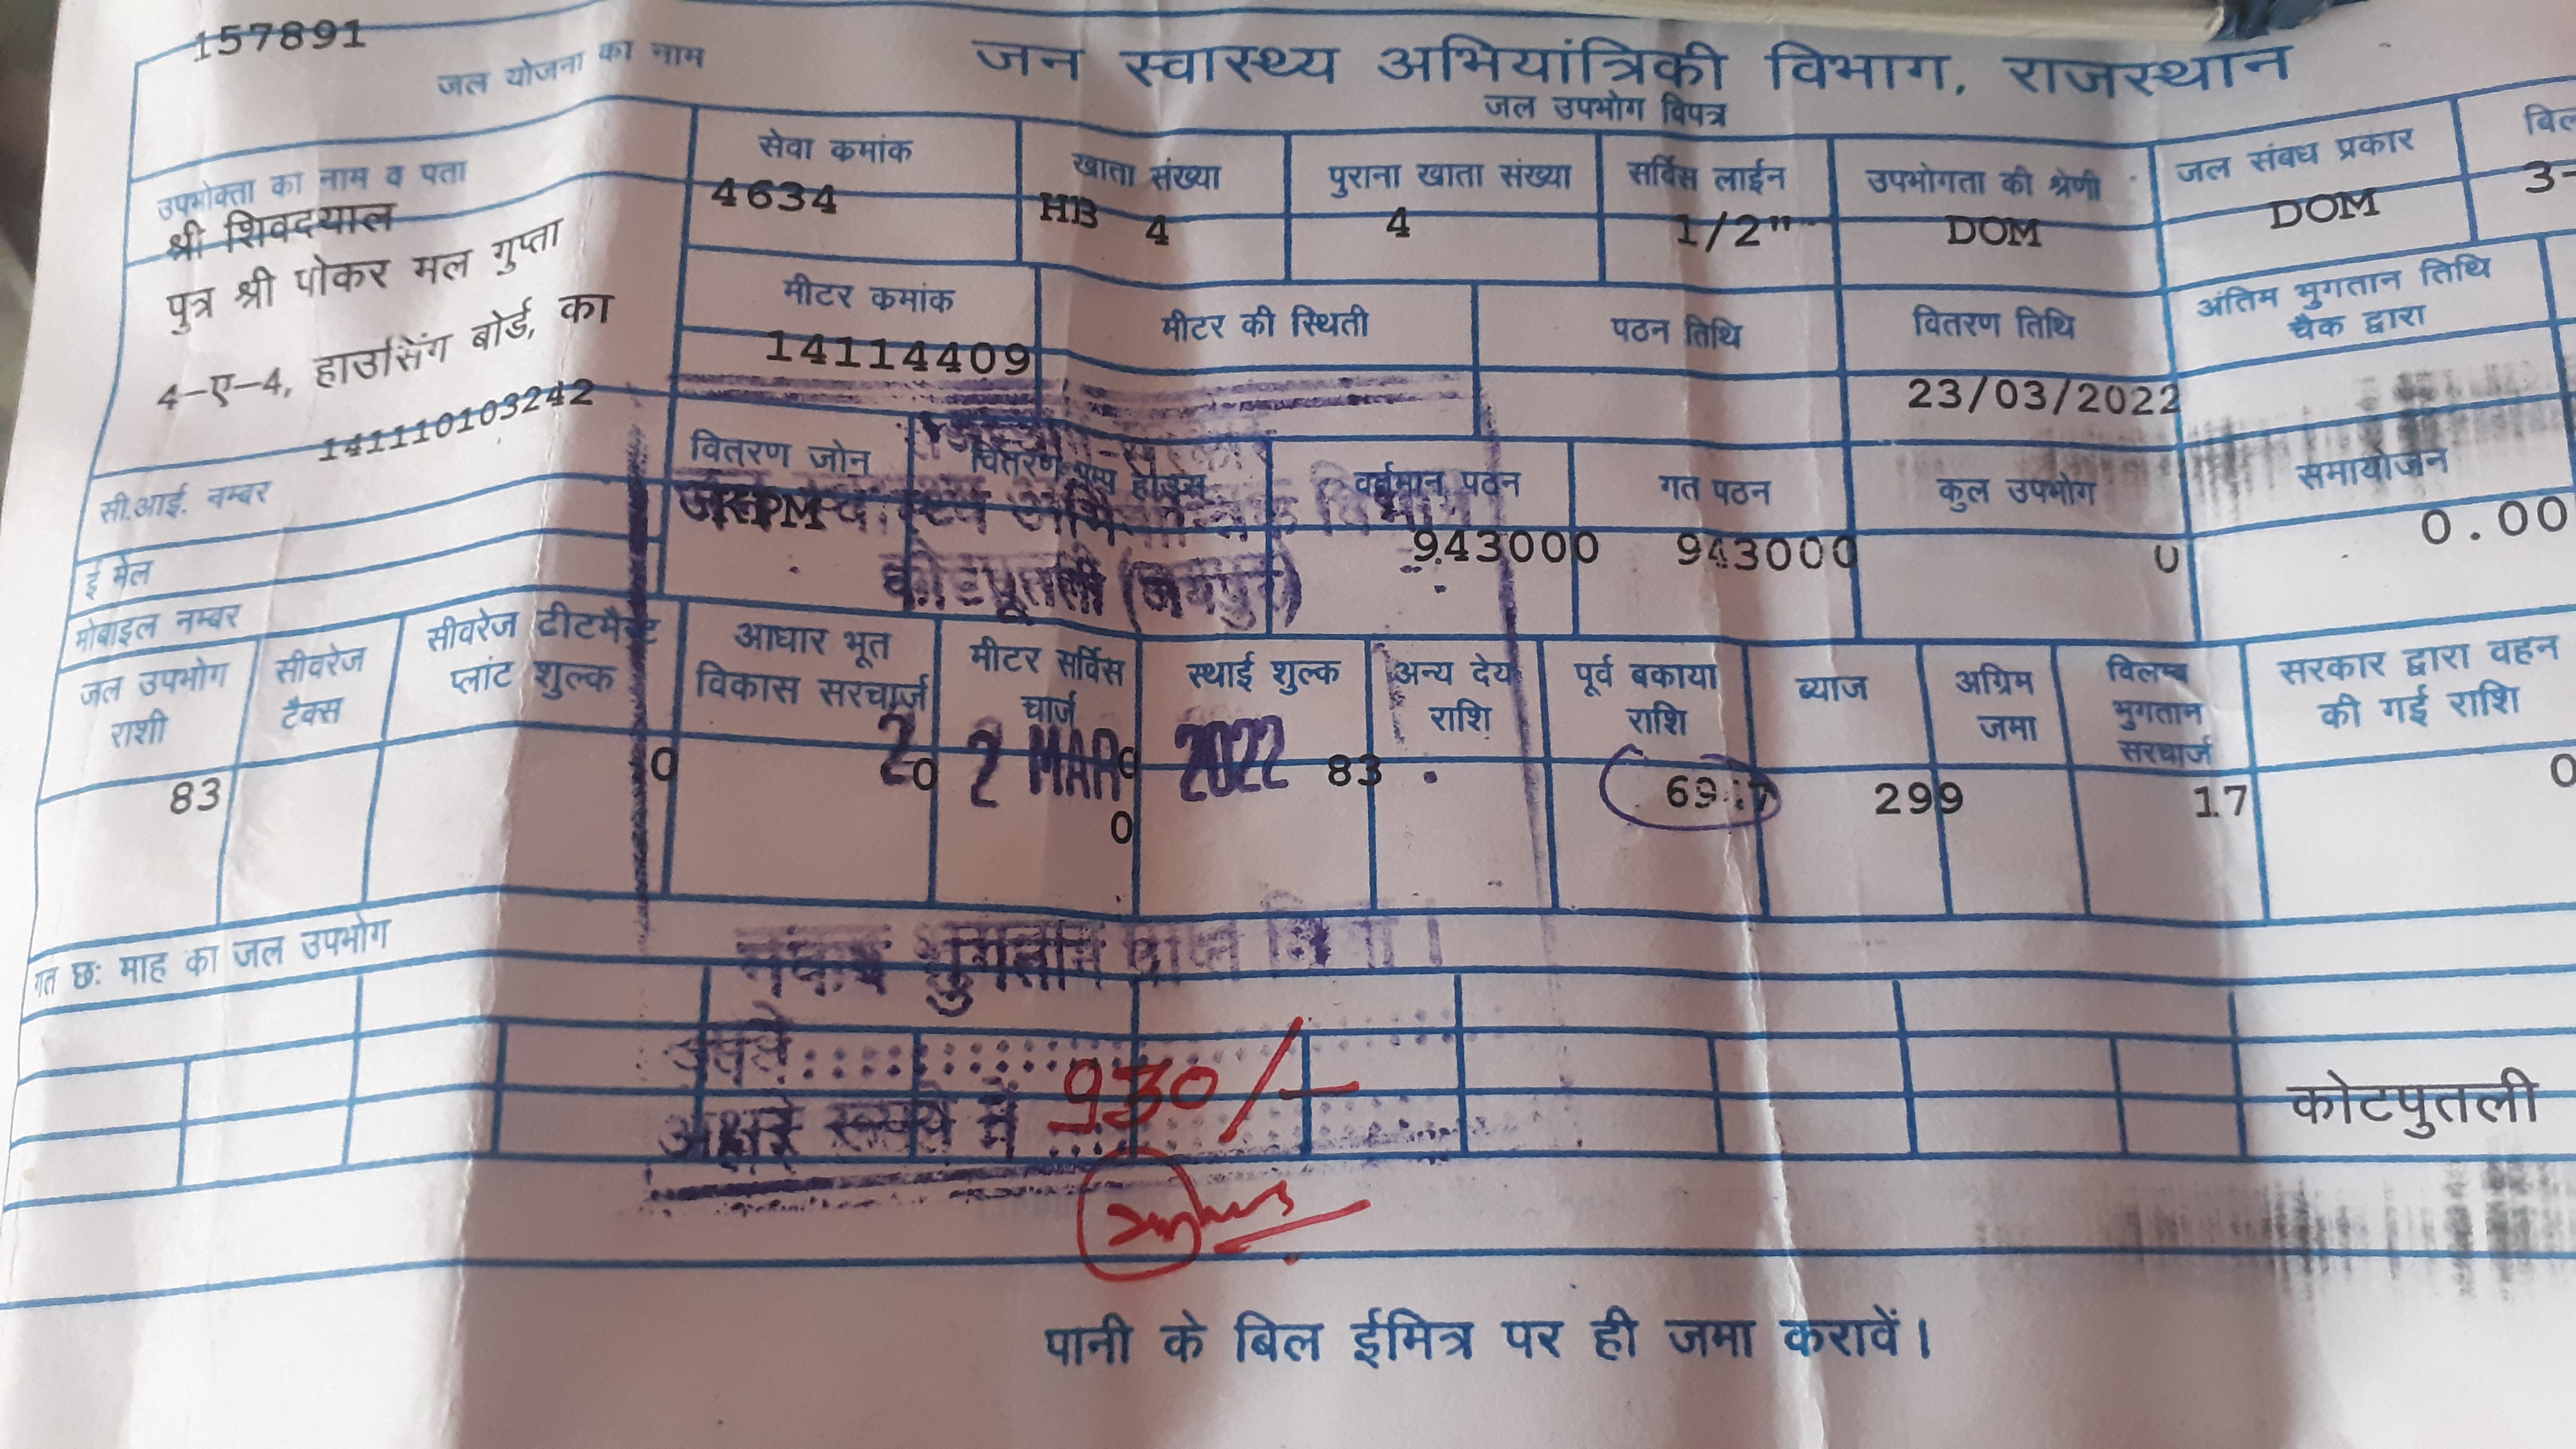 157891
जल योजना का नाम
जन स्वास्थ्य अभियांत्रिकी विभाग, राजस्थान
जल उपभोग विपत्र
उपभोक्ता का नाम व पता
श्री शिवदयाल
पुत्र श्री पोकर मल गुप्ता
4-ए-4, हाउसिंग बोर्ड, का
141110103242
सेवा कमांक
4634
खाता संख्या
HB 4
पुराना खाता संख्या
4
सर्विस लाईन
1/2"
उपभोगता की श्रेणी
DOM
जल संबध प्रकार
DOM
बिल
3-
मीटर कमांक
14114409
मीटर की स्थिती
पठन तिथि
वितरण तिथि
23/03/2022
अंतिम भुगतान तिथि
चैक द्वारा
सी.आई. नम्बर
ई मेल
मोबाइल नम्बर
वितरण जोन
वितरण पम्प हाउस
वर्तमान पठन
943000
गत पठन
943000
कुल उपभोग
0
समायोजन
0.00
कोटपूतली (जयपुर)
जल उपभोग
राशी
83
सीवरेज
टैक्स
सीवरेज टीटमैन्ट
प्लांट शुल्क
0
आधार भूत
विकास सरचार्ज
0
मीटर सर्विस
चार्ज
0
0
स्थाई शुल्क
83
अन्य देय
राशि
पूर्व बकाया
राशि
ब्याज
299
अग्रिम
जमा
विलम्ब
भुगतान
सरचार्ज
17
सरकार द्वारा वहन
की गई राशि
0
2 2 MAR 2022
गत छ: माह का जल उपभोग
नकद भुगतान प्राप्त किया।
अक्षरे रूपये में
930/-
कोटपुतली
पानी के बिल ईमित्र पर ही जमा करावें।